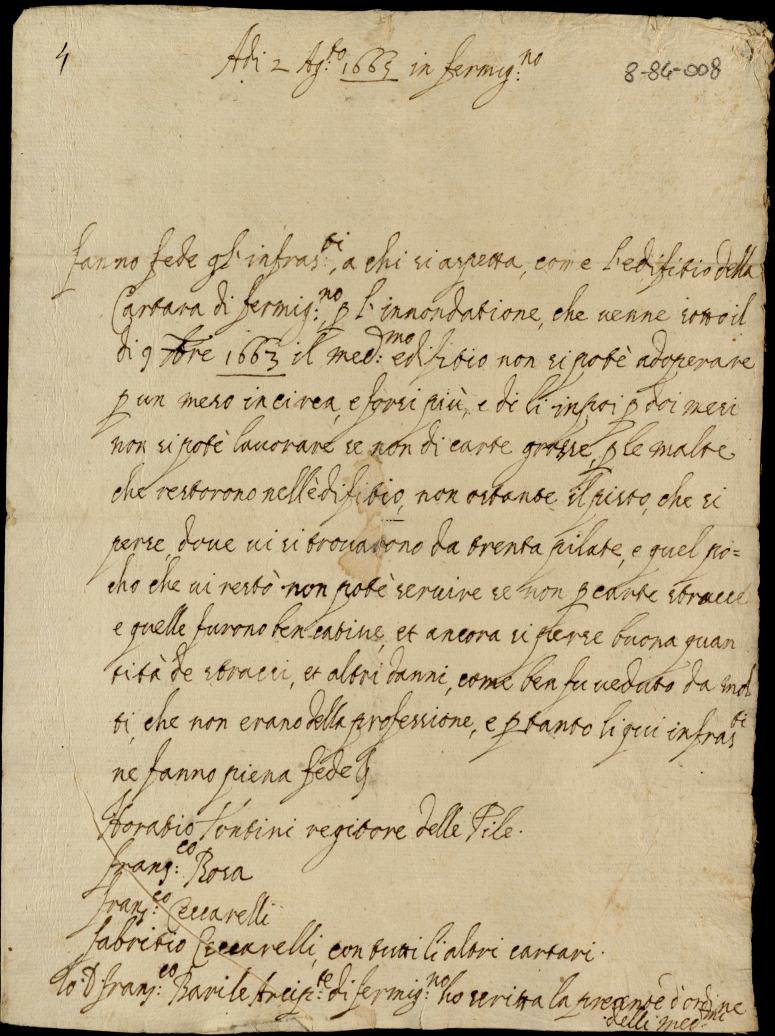 4
Adi 2 Ag:to 1665 in fermig:no
8-84-008
fanno fede gl'infras:ti, a chi si aspetta, come l'edifitio della
Cartara di fermig:no, p l'innondatione, che venne sotto il
di 9 9bre 1663 il med:mo edifitio non si potè adoperare
p un mese incirca, e forsi più, e di lì inpoi p doi mesi
non si potè lauorare se non di carte grosse, p le malte
che restorono nell'edifitio, non ostante il pisto, che si
perse, doue ui si trouauono da trenta pilate, e quel po=
cho che ui restò non potè seruire se non p carte stracce
e quelle furono ben catiue, et ancora si perse buona quan
tità de stracci, et altri danni, come ben fu ueduto da mol
ti, che non erano della professione, e p tanto li qui infras:ti
ne fanno piena fede
Horatio Tontini regitore delle Pile.
franc:co Rosa
fran:co Ceccarelli
fabritio Ceccarelli, con tutti li altri cartari.
Io D fran:co Barile Arcip:te di fermig:no ho scritta la presente d'ordine
delli med:mi